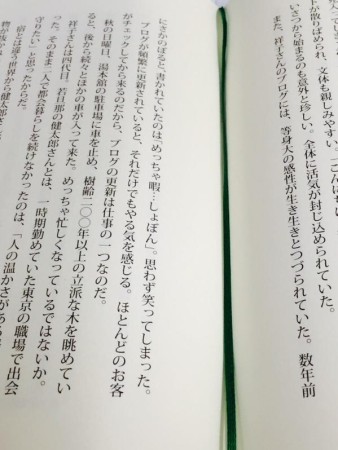 トが散りばめられ、文体も親しみやすい。ごんにち
いさつから始まるのも意外と珍しい。全体に活気が封じ込められていた。
また、祥子さんのブログには、等身大の感性が生き生きとつづられていた。数年前
にさかのぼると、書かれていたのは「めっちゃ暇…しょぼん」。思わず笑ってしまった。
ブログが頻繁に更新されていると、それだけでもやる気を感じる。ほとんどのお客
がチェックしてから来るのだから、ブログの更新は仕事の一つなのだ。
秋の日曜日、湯本舘の駐車場に車を止め、樹齢二〇〇年以上の立派な木を眺めてい
ると、後から続々とほかの車が入って来た。めっちゃ忙しくなっているではないか。
祥子さんは四代目。若旦那の健太郎さんとは、一時期勤めていた東京の職場で出会
った。そのまま二人で都会暮らしを続けなかったのは、「人の温かさがある
守りたい」と思ったからだ。
俗とは違う世界から健太郎を